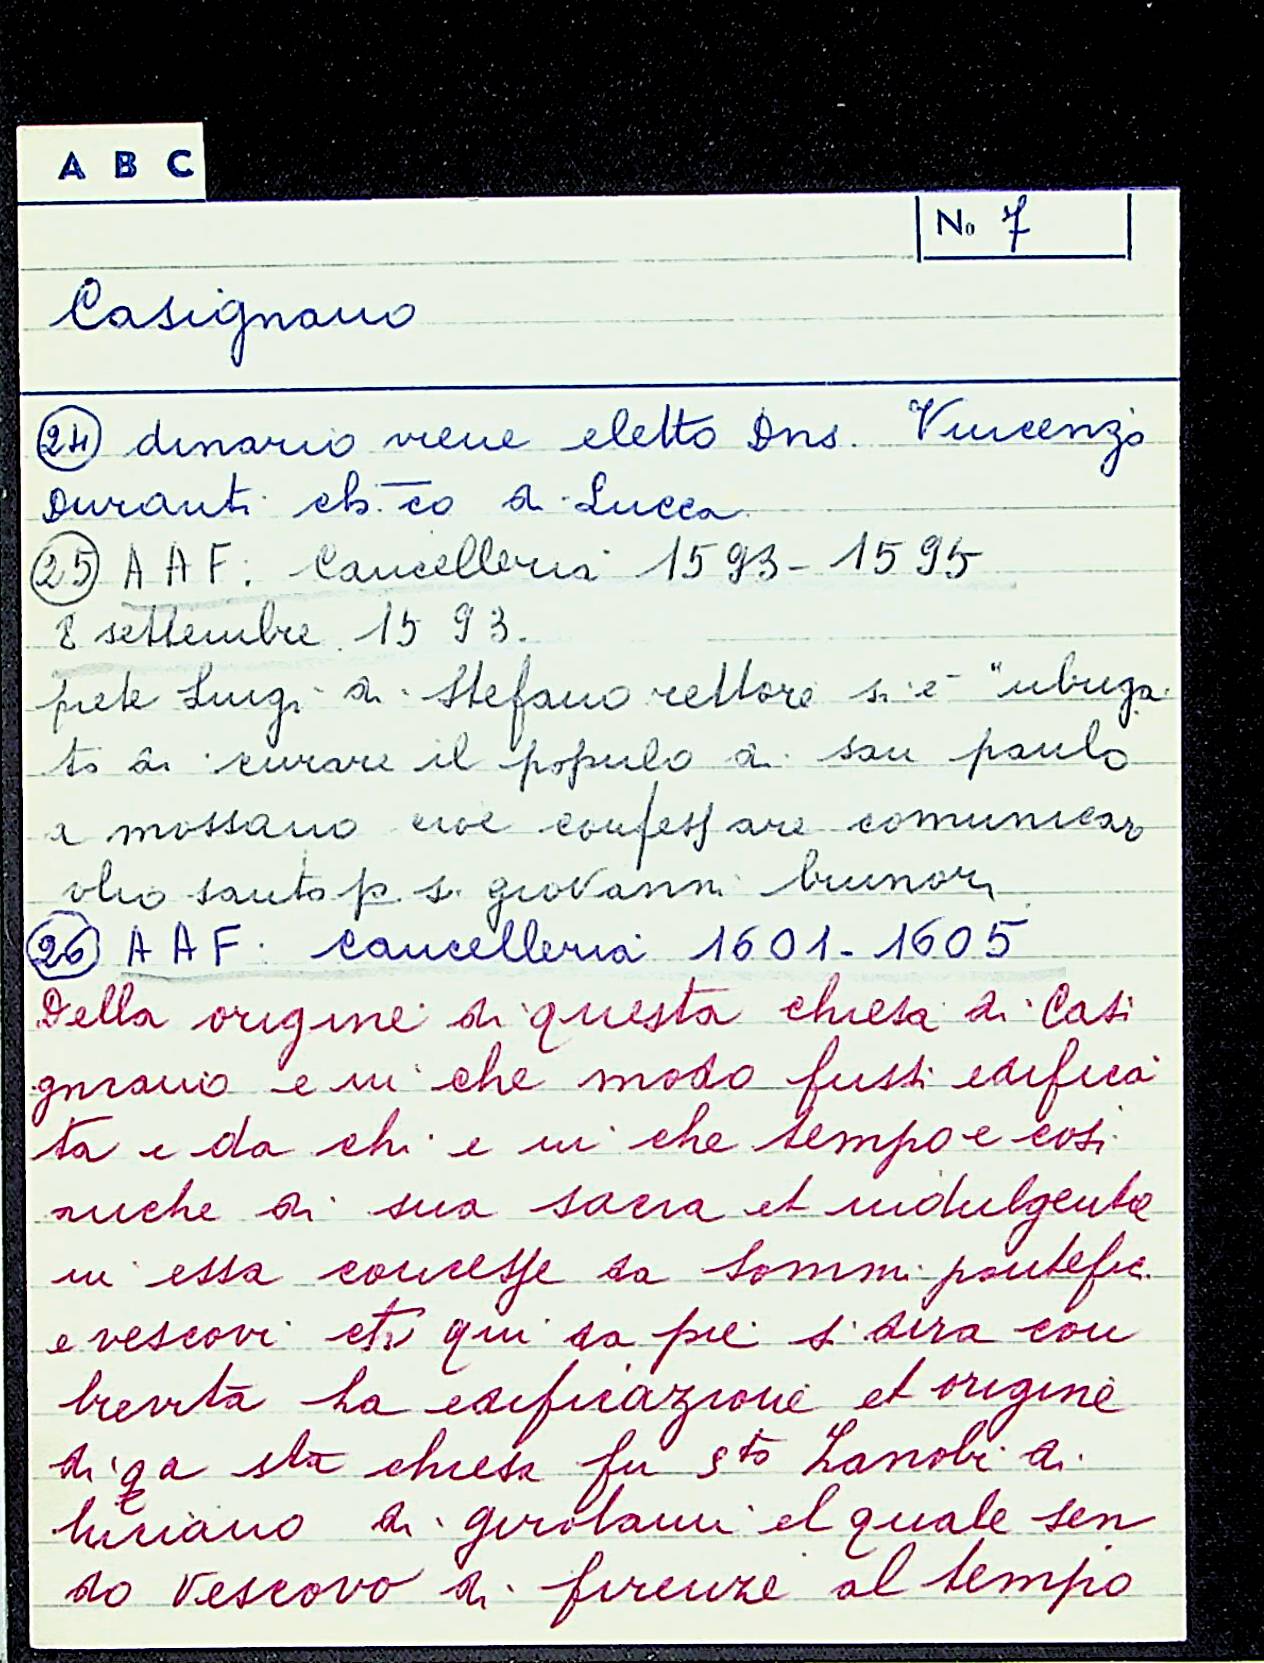 A B C
No 7
Casignano
24 dinario viene eletto Dns. Vincenzo
Duranti ch.co di Lucca
25 AAF. Cancelleria 1593-1595
8 settembre 1593.
prete Luigi di Stefano rettore si è "ubriga
to di curare il populo di san paulo
a mossano cioè confessare comunicar
olio santo p. s. giovanni brunori
26 AAF. Cancelleria 1601-1605
Della origine di questa chiesa di Casi
gniano e in che modo fussi edifica
ta e da chi e in che tempo e così
anche di sua sacra et indulgente
in essa concesse da sommi pontefic.
e vescovi etc qui da piè si dira con
brevità la edificazione et origine
di qa sta chiesa fu sto Zanobi di
luciano di girolami el quale sen
do vescovo di firenze al tempo